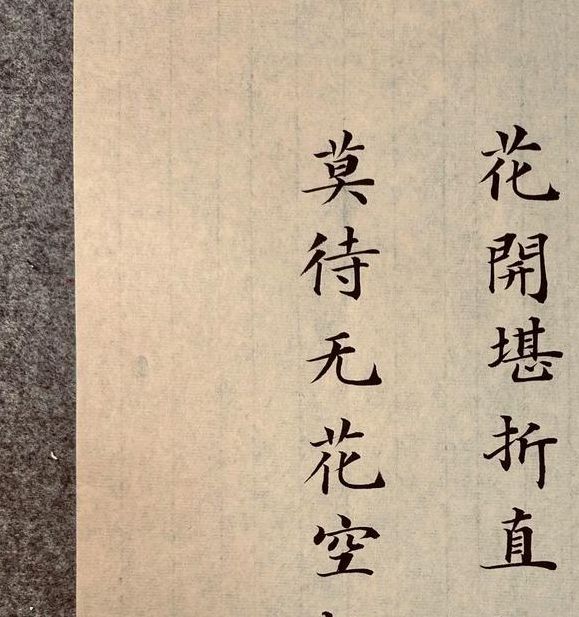 花開堪折直
莫待无花空